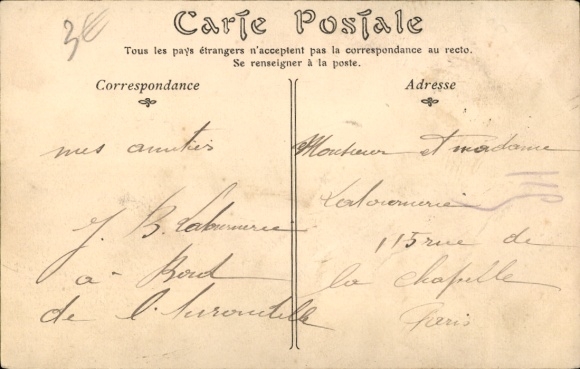 3€
Carte Postale
Tous les pays étrangers n'acceptent pas la correspondance au recto.
Se renseigner à la poste.
Correspondance
Adresse
mes amitiés
J. B.
à Bord
de l'
Monsieur et madame
115 rue de
la chapelle
Paris